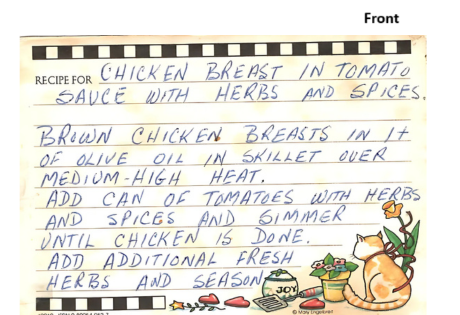 Front
RECIPE FOR CHICKEN BREAST IN TOMATO
SAUCE WITH HERBS AND SPICES.
BROWN CHICKEN BREASTS IN 1t
OF OLIVE OIL IN SKILLET OVER
MEDIUM-HIGH HEAT.
ADD CAN OF TOMATOES WITH HERBS
AND SPICES AND SIMMER
UNTIL CHICKEN IS DONE.
ADD ADDITIONAL FRESH
HERBS AND SEASON
JOY
© Mary Engelbreit